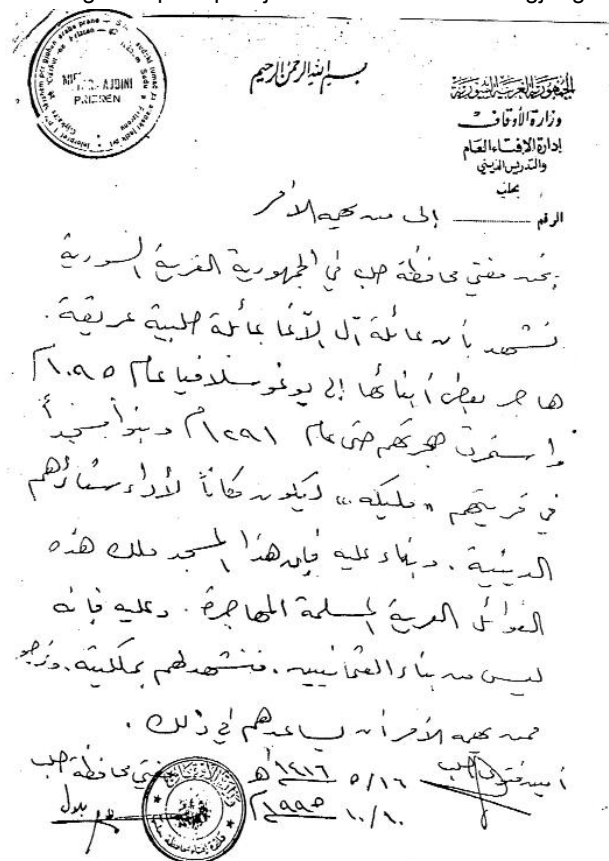 بسم الله الرحمن الرحيم
الجمهورية العربية السورية
وزارة الأوقاف
إدارة الافتاء العام
والتدريس الديني
بحلب
الرقم
إلى من يهمه الأمر
نحن مفتي محافظة حلب في الجمهورية العربية السورية
نشهد بأن عائلة آل الآغا عائلة حلبية عريقة.
هاجر بعض أبنائها إلى يوغوسلافيا عام ١٠٩٥م
واستمرت هجرتهم حتى عام ١٢٩١م وبنوا مسجداً
في قريتهم «مليكه» ليكون مكاناً لأداء شعائرهم
الدينية. وبناء عليه فإن هذا المسجد ملك هذه
العوائل العربية المسلمة المهاجرة. وعليه فإنه
ليس من بناء العثمانيين. فنشهد لهم بملكيته. ونرجو
ممن يهمه الأمر أن يساعدهم في ذلك.
أمين فتوى حلب ٥/١٦ ١٤١٦هـ مفتي محافظة حلب
١٠/١٠ ١٩٩٥م
PRIZREN